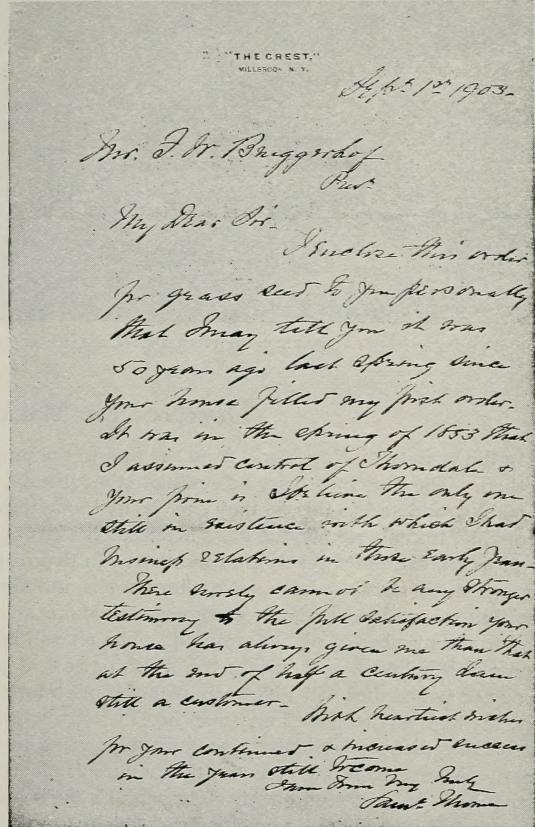 "THE CREST,"
MILLBROOK N. Y.
Sept. 1st 1903-
Mr. F. W. Bruggerhof
Prest.
My Dear Sir-
I enclose this order
for grass seed to you personally
that I may tell you it was
50 years ago last spring since
your house filled my first order-
It was in the spring of 1853 that
I assumed control of Thorndale &
your firm is I believe the only one
still in existence with which I had
business relations in those early years-
There surely cannot be any stronger
testimony to the full satisfaction your
house has always given me than that
at the end of half a century I am
still a customer- With heartiest wishes
for your continued & increased success
in the years still to come
I am Yours Very Truly
Saml. Thorne